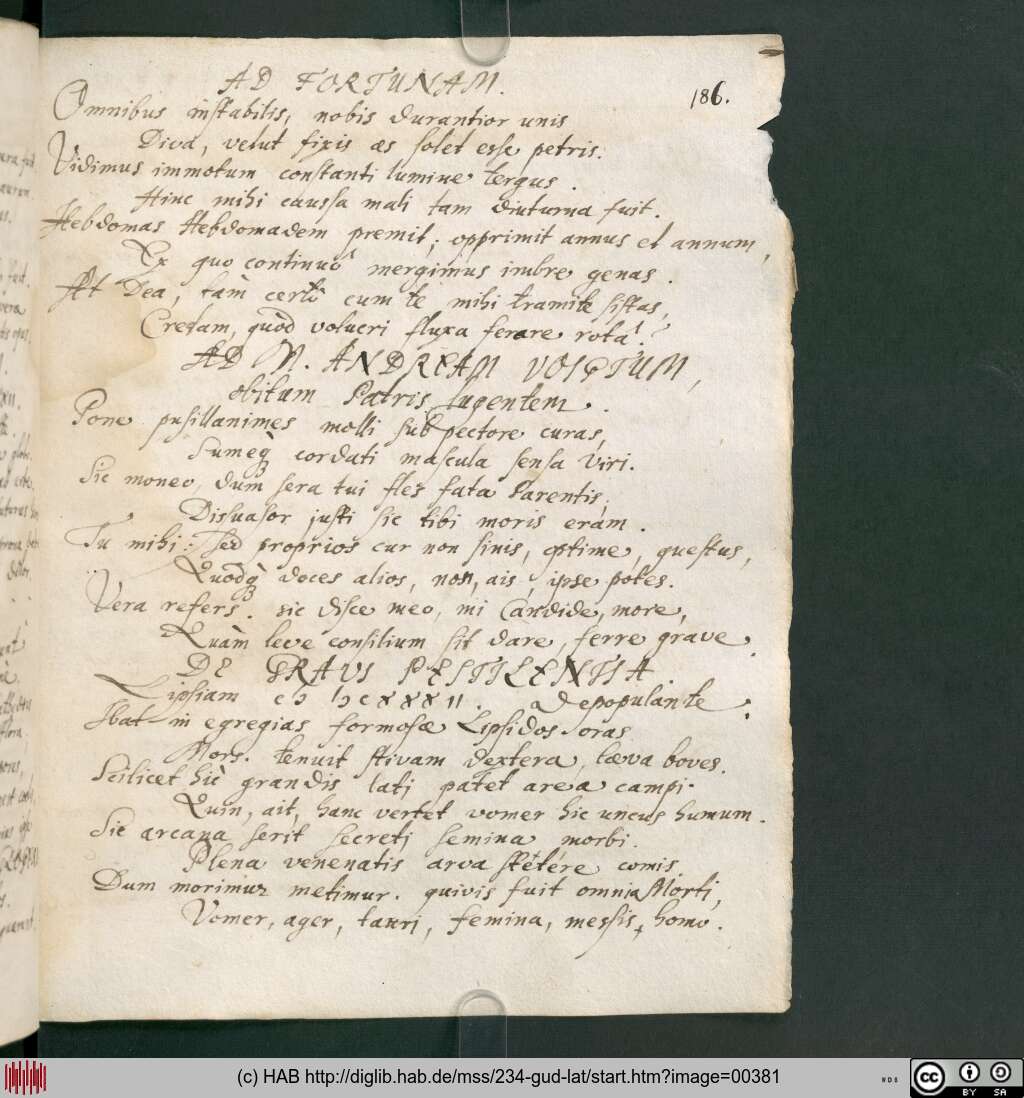 186.
AD FORTUNAM.
Omnibus instabilis, nobis durantior unis
Diva, velut fixis as solet esse petris.
Vidimus immotum constanti lumine tergus.
Hinc mihi caussa mali tam diuturna fuit.
Hebdomas Hebdomadem premit, opprimit annus et annum,
Ex quo continuò mergimus imbre genas.
At Dea, tàm certo cum te mihi tramite sistas,
Credam, quòd volucri fluxa ferare rotâ?
AD M. ANDREAM VOIGTUM,
obitum Patris lugentem.
Pone pusillanimes molli sub pectore curas,
Sumeq cordati mascula sensa Viri.
Sic moneo, dum sera tui fles fata Parentis,
Dissuasor justi sic tibi moris eram.
Tu mihi: Sed proprios cur non sinis, optime, questus,
Quodq doces alios, non, ais, ipse potes.
Vera refers. sic disce meo, mi Candide, more,
Quàm leve consilium sit dare, ferre grave.
DE GRAVI PESTILENTIA
Lipsiam cIɔ Iɔ cxxxII. depopulante.
Ibat in egregias formosæ Lipsidos oras
Mors. tenuit stivam dextera, læva boves.
Scilicet hîc grandis lati patet area campi.
Quin, ait, hanc vertet vomer hic uncus humum.
Sic arcana serit secreti semina morbi.
Plena venenatis arva stetére comis.
Dum morimur metimur. quivis fuit omnia Morti,
Vomer, ager, tauri, femina, messis, homo.
(c) HAB http://diglib.hab.de/mss/234-gud-lat/start.htm?image=00381
cc BY SA